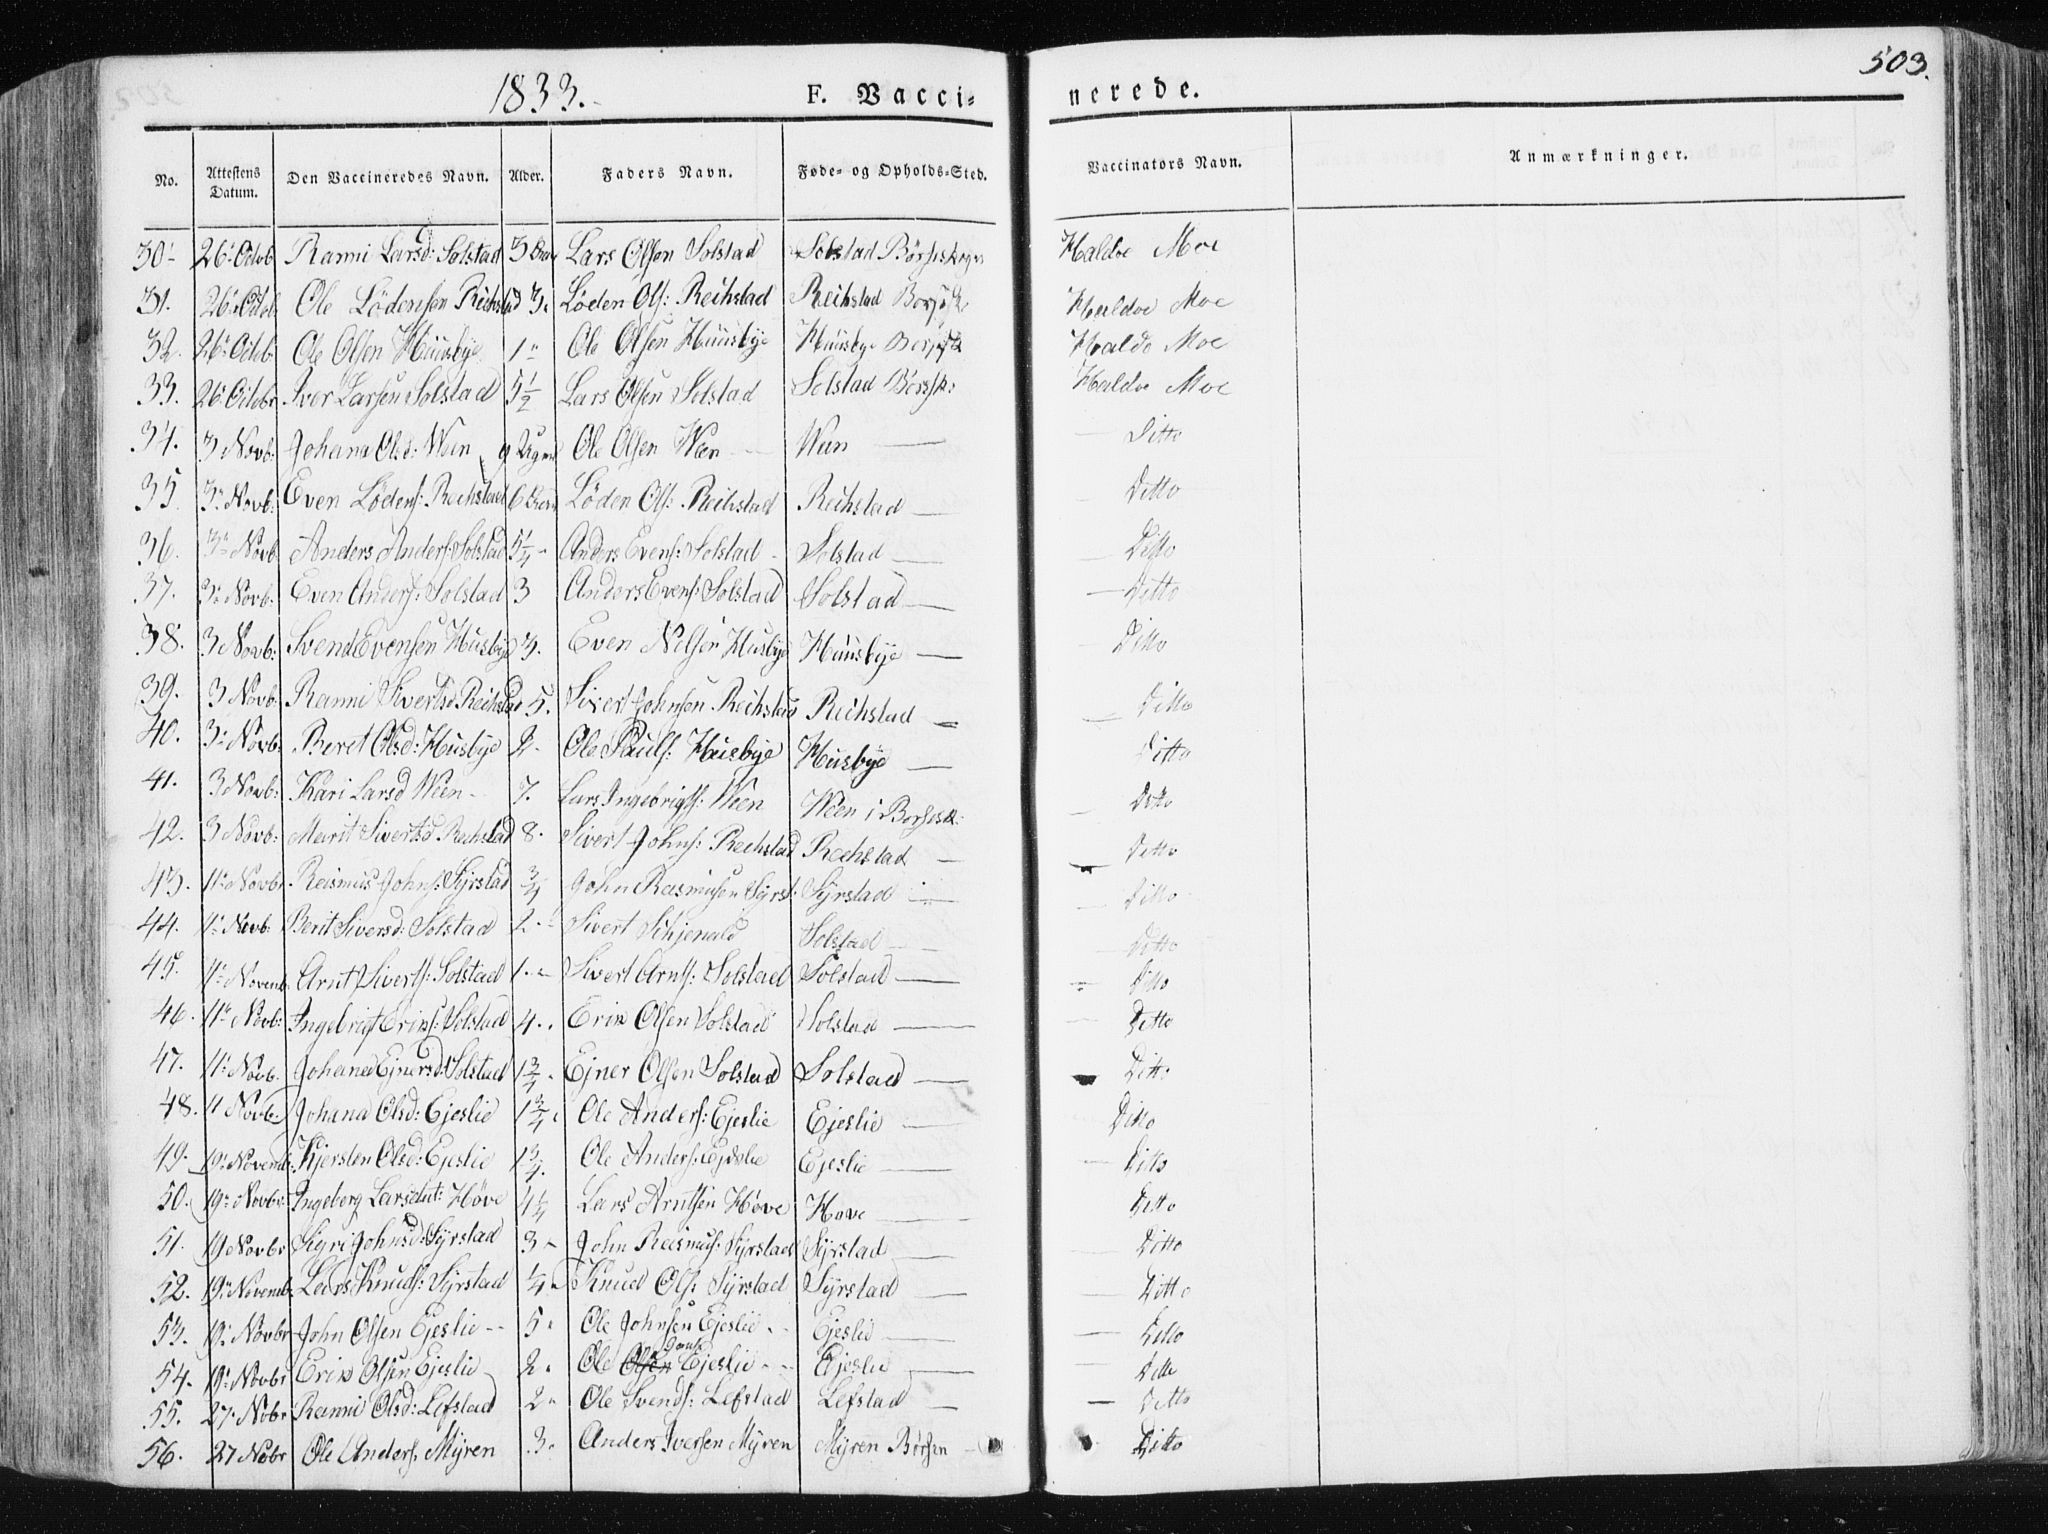 1833. F. Vacci- nerede. 503.
No. Attestens Datum. Den Vaccineredes Navn. Alder. Faders Navn. Føde- og Opholds-Sted. Vaccinators Navn. Anmærkninger.
30. 26. Octob Ranni Larsd: Solstad 3 Lars Olsen Solstad Solstad Børseskogn Haldoe Moe
31. 26. Octob Ole Lödensen Reihstad 3. Löden Ols: Reihstad Reihstad Børsesk Haldoe Moe
32. 26. Octob: Ole Olsen Huusbye 1" Ole Olsen Huusbye Huusbye Børsesk Haldo Moe
33. 26. Octobr Iver Larsen Solstad 5 1/2 Lars Olsen Solstad Solstad Børssk: Haldoe Moe
34. 3 Novb: Johana Olsd: Ween 9 Ole Olsen Ween Ween — — Ditto
35. 3" Novb: Even Lödens: Reihstad 6 Löden Ols: Reihstad Reihstad — — Ditto
36. 3" Novb Anders Anders: Solstad 5 1/4 Anders Evens: Solstad Solstad — — Ditto
37. 3" Novb: Even Anders: Solstad 3 Anders Evens: Solstad Solstad — — Ditto
38. 3 Novb: Svend Evensen Husbye 3. Even Nelsen Husbye Huusbye — — Ditto
39. 3 Novb: Ranni Sivertsd Reihstad 5. Sivert Johnsen Reihstad Reihstad — — Ditto
40. 3" Novb: Beret Olsd: Husbye 2 - Ole Pauls: Husbye Husbye — Ditto
41. 3 Novb: Kari Larsd Ween - 7. Lars Ingebrigts: Ween Ween i Børsesk: — Ditto
42. 3 Novb: Marit Sivertsd Reihstad 8. Sivert Johns: Reihstad Reihstad — — Ditto
43. 11" Novbr. Rasmus Johns: Syrstad 3/4 John Rasmusen Syrst: Syrstad — — Ditto
44. 11" Novb: Berit Siversd: Solstad 2 Sivert Solstad — — Ditto
45. 11" Novemb. Arnt Siverts: Solstad 1. Sivert Arnts: Solstad Solstad — — Ditto
46. 11" Novb: Ingebrigt Eriks: Solstad 4. Erik Olsen Solstad Solstad — — Ditto
47. 11" Novb. Johana Ejnersd: Solstad 1 3/4 Ejner Olsen Solstad Solstad — — Ditto
48. 11 Novb. Johana Olsd: Ejeslie 1 3/4 Ole Anders: Ejeslie Ejeslie — Ditto
49. 19" Novemb: Kjersten Olsd: Ejeslie 1 3/4. Ole Anders: Ejeslie Ejeslie — — Ditto
50. 19" Novbr: Ingeborg Larsdat: Höve 4 1/4 Lars Arntsen Höve Hove — — Ditto
51. 19 Novbr Sigri Johnsd: Syrstad 3 - John Rasmus: Syrstad Syrstad — — Ditto
52. 19" Novemb: Lars Knuds: Syrstad 1/4 Knud Ols: Syrstad Syrstad — — Ditto
53. 19" Novbr John Olsen Ejeslie - - 5 Ole Johnsen Ejeslie Ejeslie — — Ditto
54. 19" Novbr Erik Olsen Ejeslie 2. Ole Olsen Ejeslie - - Ejeslie — — Ditto
55. 27" Nobr Ranni Olsd: Lefstad 2" Ole Svends: Lefstad Lefstad — — Ditto
56. 27 Nobr Ole Anders: Myren 3. Anders Iversen Myren Myren Børsen — Ditto